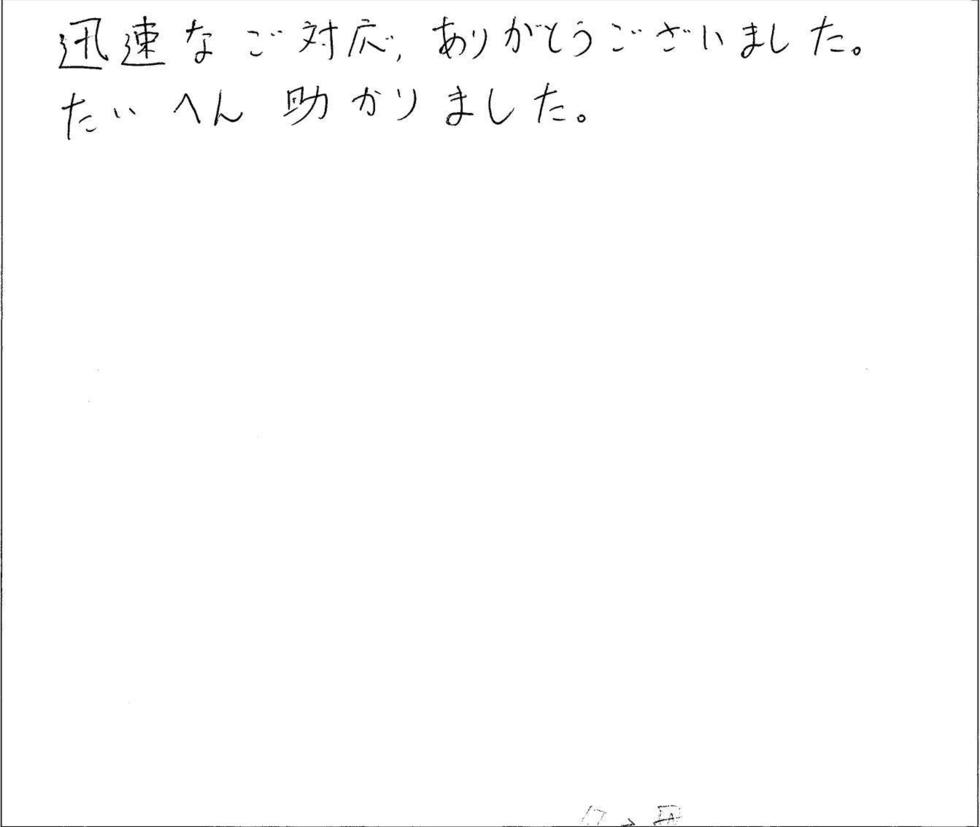 迅速なご対応、ありがとうございました。
たいへん助かりました。